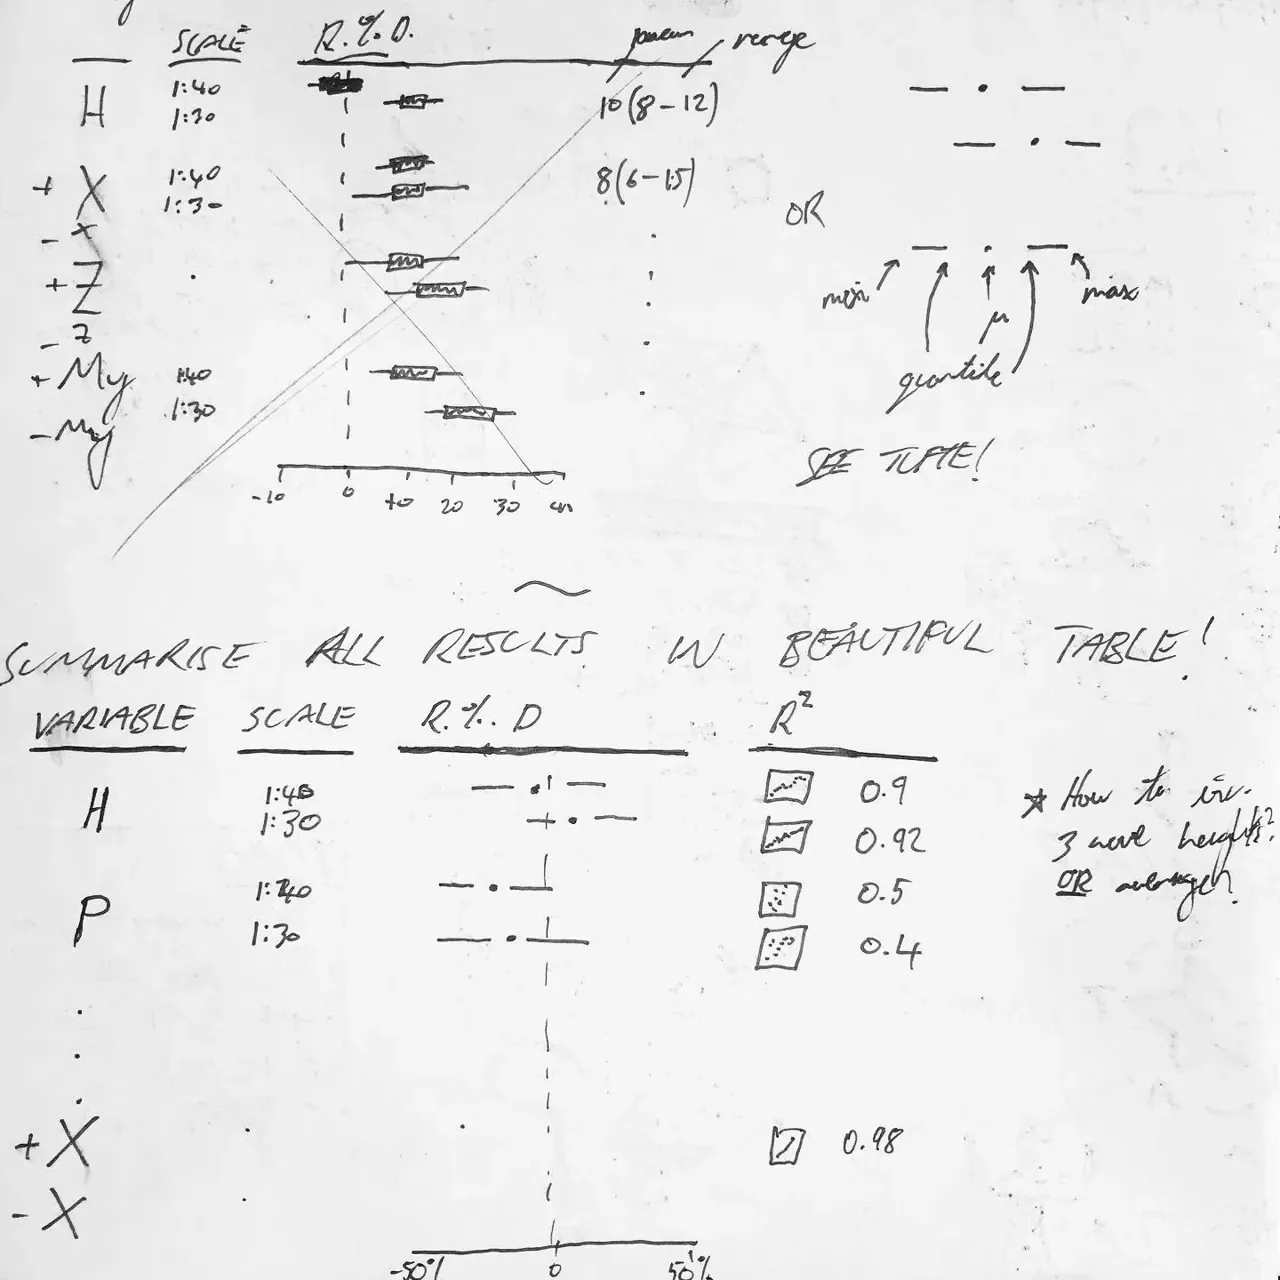 SCALE R.%D. mean range
H 1:40
1:30 10 (8-12)
+ X 1:40
1:30 8 (6-15)
- X
OR
+ Z
min μ max
- Z
quartile
+ My 1:40
1:30
- My
SEE TUFTE!
-10 0 10 20 30 40
SUMMARISE ALL RESULTS IN BEAUTIFUL TABLE!
VARIABLE SCALE R.%.D R²
H 1:40 0.9
1:30 0.92
P 1:40 0.5
1:30 0.4
* How to inc.
3 wave heights?
OR average?
+ X 0.98
- X
-50% 0 50%